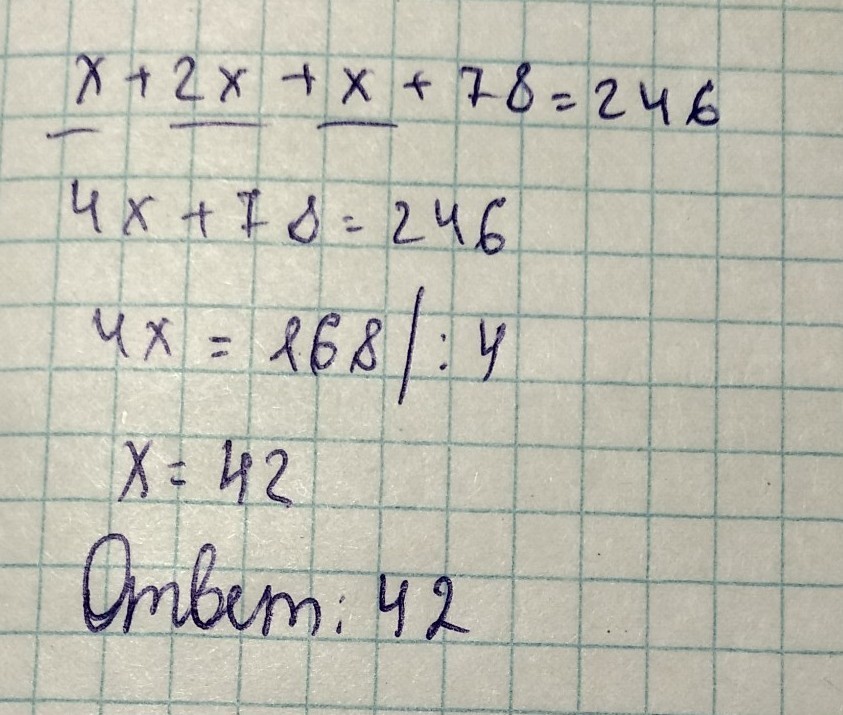 x + 2x + x + 78 = 246
4x + 78 = 246
4x = 168 / : 4
x = 42
Ответ: 42